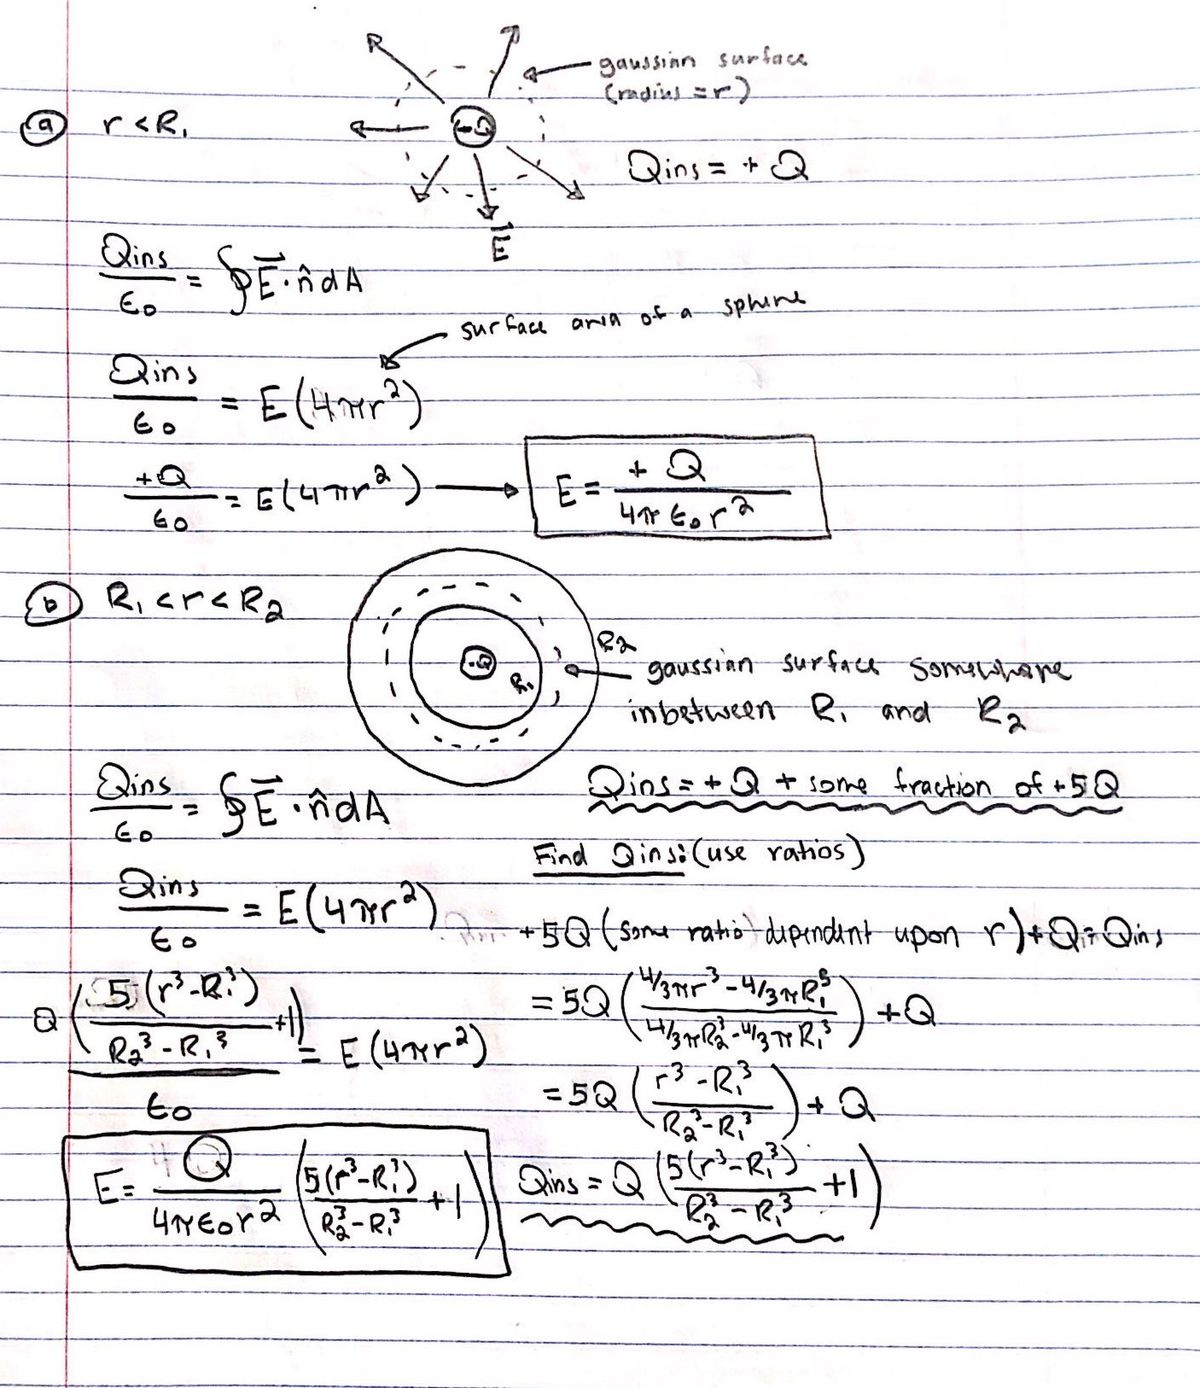 gaussian surface
(radius = r)
ⓐ r < R₁
+Q
Qins = + Q
E⃗
Qins/ϵ₀ = ∮E⃗·n̂dA
surface area of a sphere
Qins/ϵ₀ = E(4πr²)
+Q/ϵ₀ = E(4πr²) → E = +Q/4πϵ₀r²
ⓑ R₁ < r < R₂
R₂
+Q
R₁
gaussian surface somewhere
inbetween R₁ and R₂
Qins/ϵ₀ = ∮E⃗·n̂dA
Qins = +Q + some fraction of +5Q
Find Qins: (use ratios)
Qins/ϵ₀ = E(4πr²)
+5Q (some ratio dependent upon r) + Q = Qins
Q(5(r³-R₁³)/R₂³-R₁³ +1)/ϵ₀ = E(4πr²)
= 5Q (4/3πr³-4/3πR₁³/4/3πR₂³-4/3πR₁³) + Q
= 5Q (r³-R₁³/R₂³-R₁³) + Q
E = Q/4πϵ₀r² (5(r³-R₁³)/R₂³-R₁³ +1)
Qins = Q (5(r³-R₁³)/R₂³-R₁³ +1)